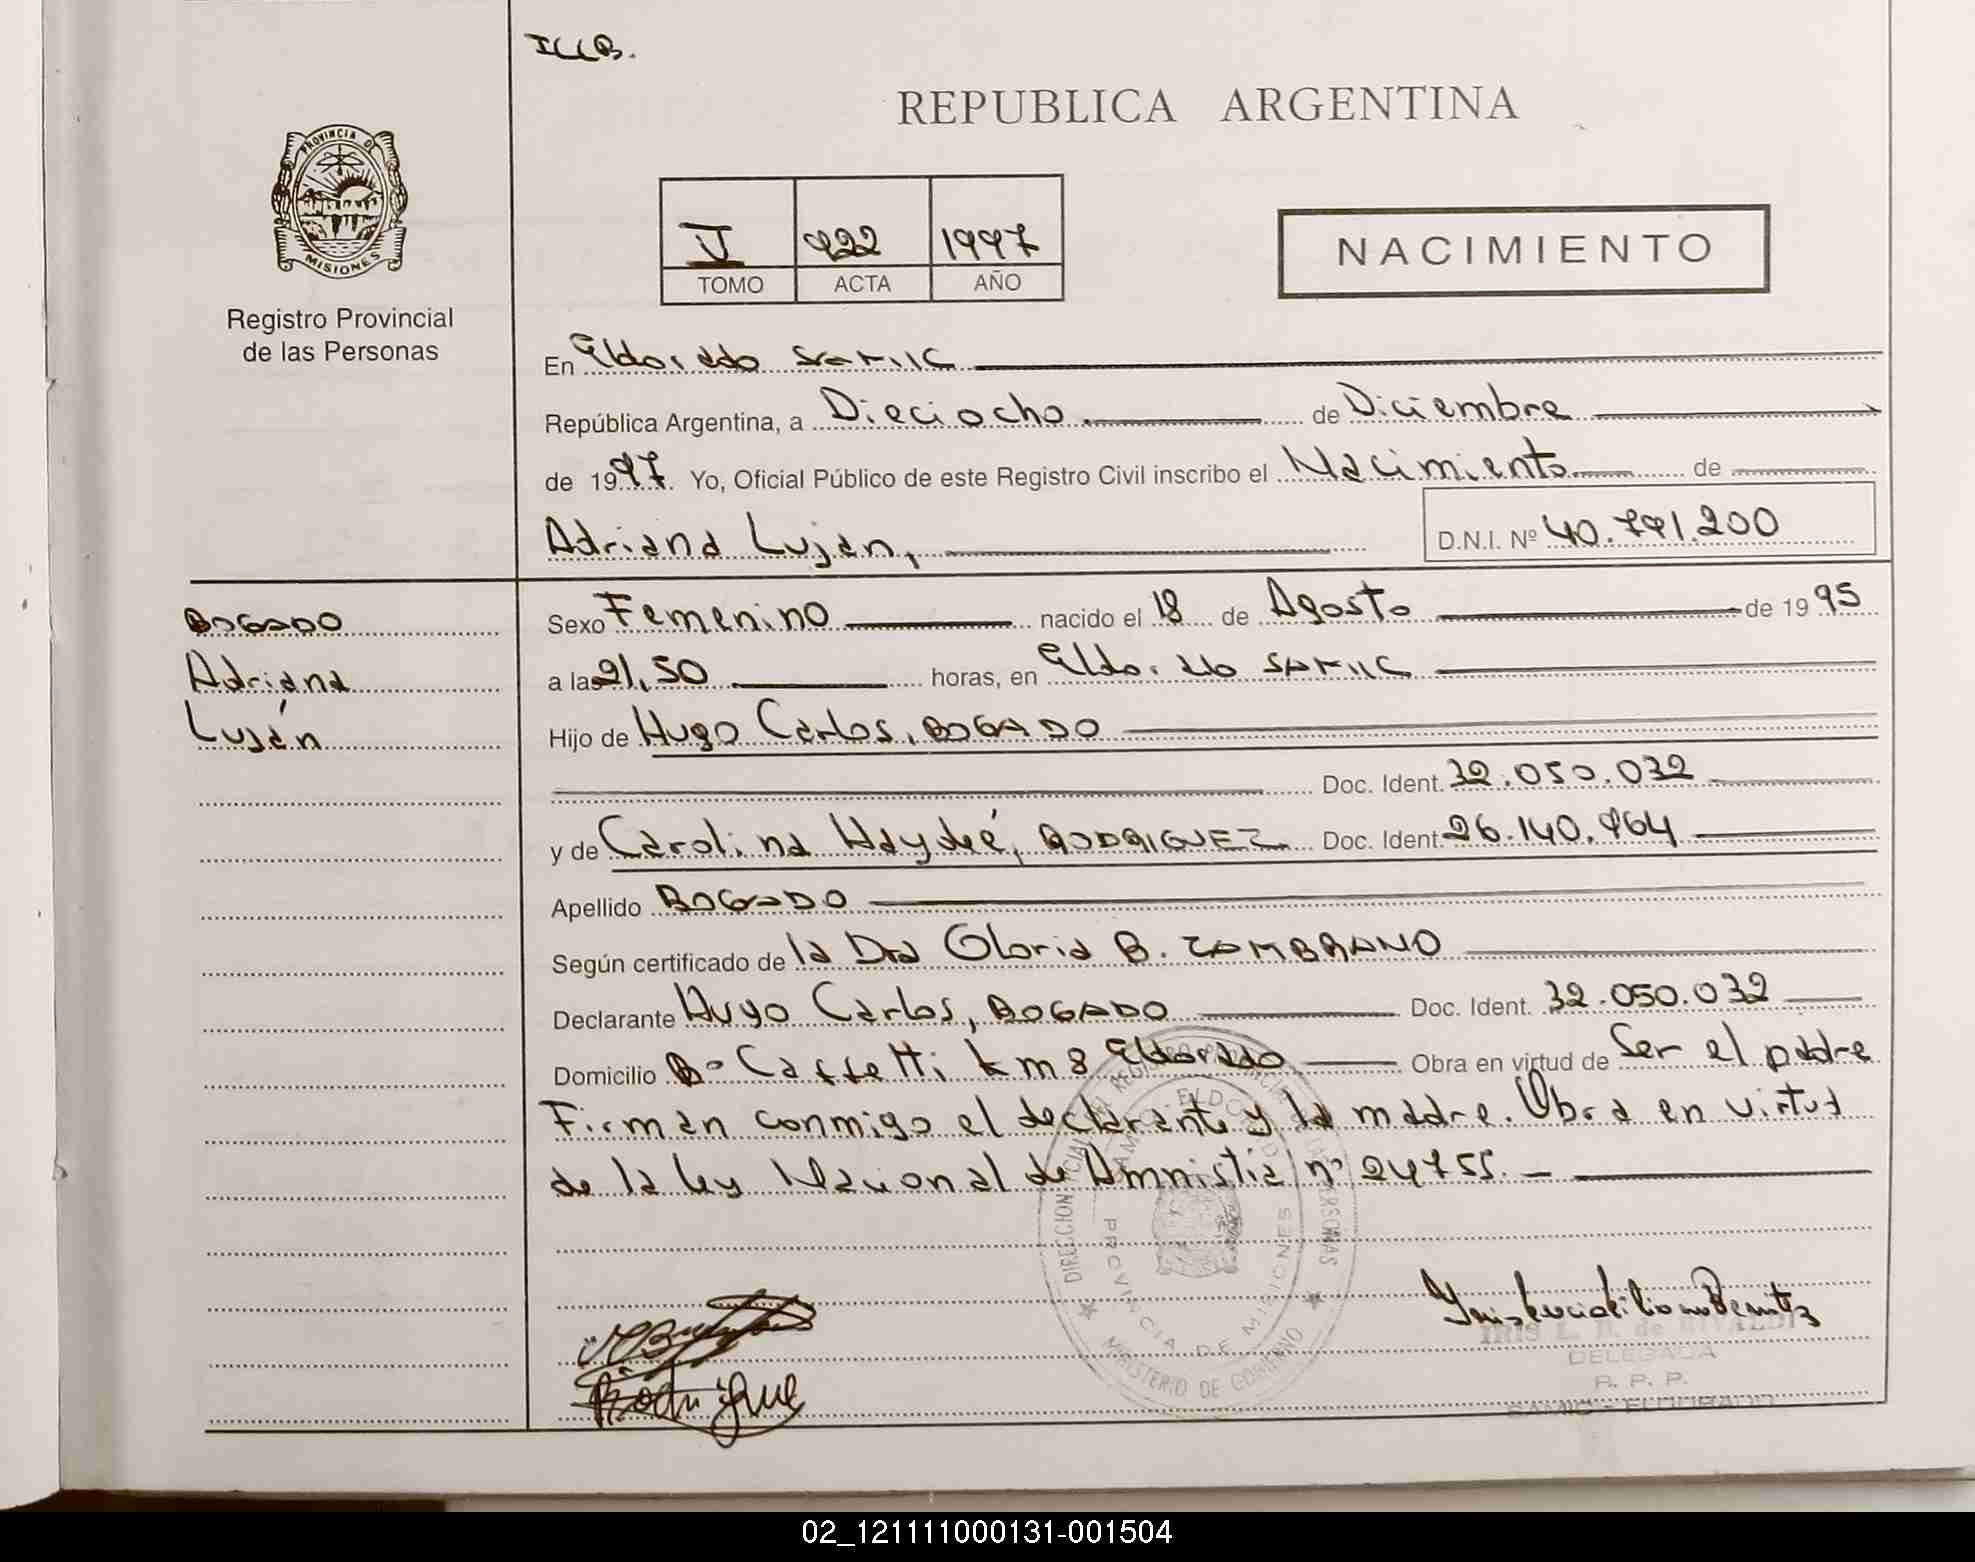 ILLB.
REPUBLICA ARGENTINA
PROVINCIA DE
MISIONES
Registro Provincial
de las Personas
V 922 1997
TOMO ACTA AÑO
NACIMIENTO
En Eldorado SAMIC
República Argentina, a Dieciocho de Diciembre
de 1997. Yo, Oficial Público de este Registro Civil inscribo el Nacimiento de
Adriana Luján, D.N.I. Nº 40.791.200
BOGADO
Adriana
Luján
Sexo Femenino nacido el 18 de Agosto de 1995
a las 21,50 horas, en Eldorado SAMIC
Hijo de Hugo Carlos, BOGADO
Doc. Ident. 32.050.032
y de Carolina Haydeé, RODRIGUEZ Doc. Ident. 26.140.964
Apellido BOGADO
Según certificado de la Dra Gloria B. ZAMBRANO
Declarante Hugo Carlos, BOGADO Doc. Ident. 32.050.032
Domicilio Bº Caffetti km 8 Eldorado Obra en virtud de Ser el padre
Firman conmigo el declarante y la madre. Obra en virtud
de la ley Nacional de Amnistia nº 24755. –
DIRECCION PROVINCIAL DEL REGISTRO PROVINCIAL DE LAS PERSONAS
SAMIC - ELDORADO
PROVINCIA DE MISIONES
MINISTERIO DE GOBIERNO
Rodrigue
IRIS L. B. de RIVALDI
DELEGADA
R. P. P.
SAMIC - ELDORADO
02_121111000131-001504